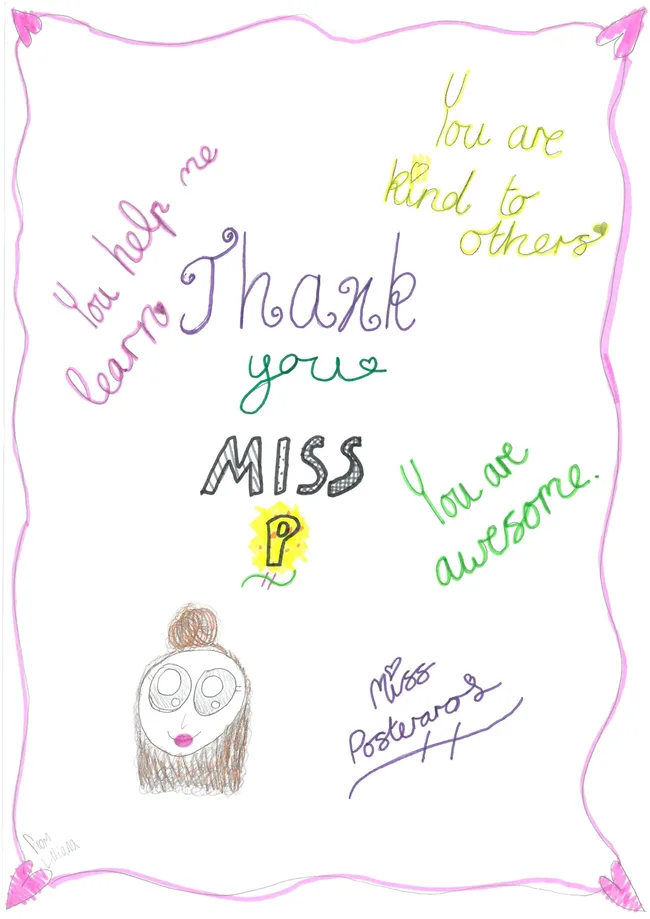 You are
kind to
others
You help me
learn
Thank
you
MISS
P
You are
awesome.
Miss
Posteraros
From
Lilliana